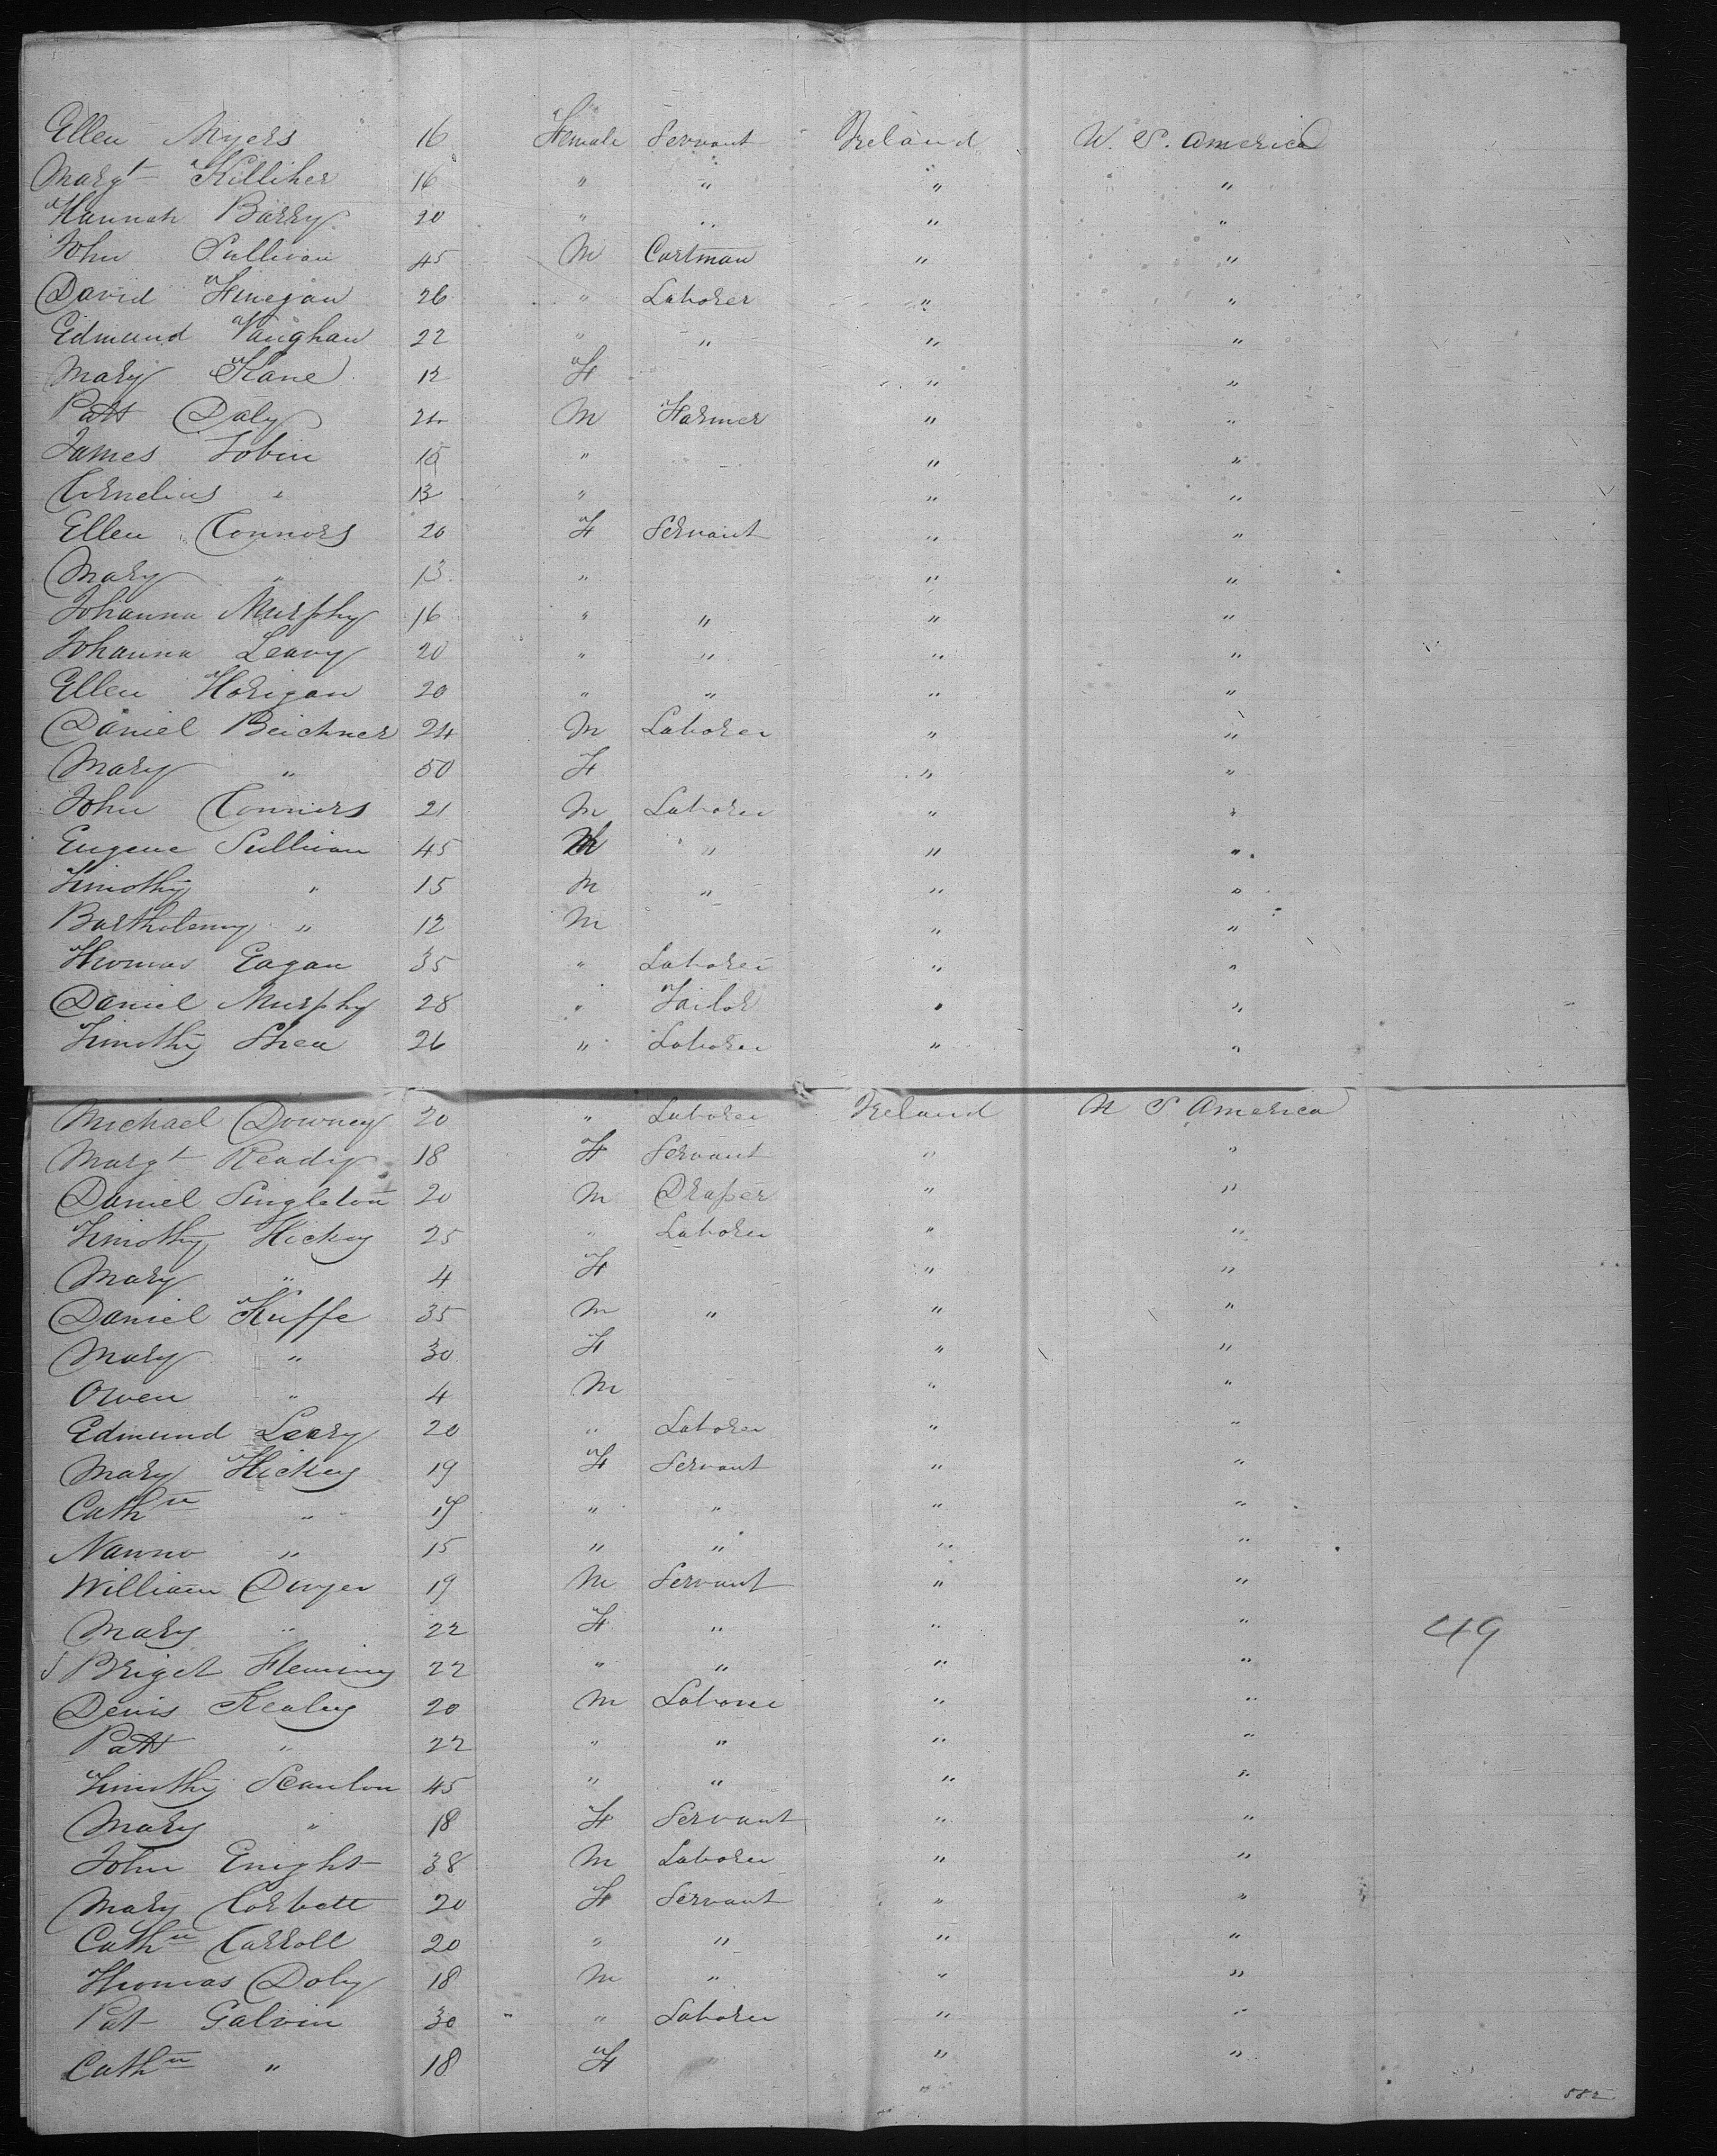 Ellen Myers 16 Female Servant Ireland U. S. America
Margt Killiher 16 " " " "
Hannah Barry 20 " " " "
John Sullivan 45 M Cartman " "
David Finegan 26 " Laborer " "
Edmund Vaughan 22 " " " "
Mary Kane 12 F " "
Patt Daly 24 M Farmer " "
James Tobin 15 " " "
Cornelius " 13 " " "
Ellen Connors 20 F Servant " "
Mary " 13 " " "
Johanna Murphy 16 " " " "
Johanna Leavy 20 " " " "
Ellen Horigan 20 " " " "
Daniel Beichner 24 M Laborer " "
Mary " 50 F " "
John Connors 21 M Laborer " "
Eugene Sullivan 45 M " " "
Timothy " 15 M " " "
Bartholemy " 12 M " "
Thomas Eagan 35 " Laborer " "
Daniel Murphy 28 " Tailor " "
Timothy Shea 26 " Laborer " "
Michael Downey 20 " Laborer Ireland U S America
Margt Ready 18 F Servant " "
Daniel Singleton 20 M Draper " "
Timothy Hickey 25 " Laborer " "
Mary " 4 F " "
Daniel Kuffe 35 M " " "
Mary " 30 F " "
Owen " 4 M " "
Edmund Leary 20 " Laborer " "
Mary Hickey 19 F Servant " "
Cathne " 17 " " " "
Nanno " 15 " " " "
William Dwyer 19 M Servant " "
Mary " 22 F " " " 49
Briget Fleming 22 " " " "
Denis Kealey 20 M Laborer " "
Patt " 22 " " " "
Timothy Scanlon 45 " " " "
Mary " 18 F Servant " "
John Enight 38 M Laborer " "
Mary Corbett 20 F Servant " "
Cathne Carroll 20 " " " "
Thomas Doly 18 M " " "
Pat Galvin 30 " " Laborer " "
Cathne " 18 F " " "
582